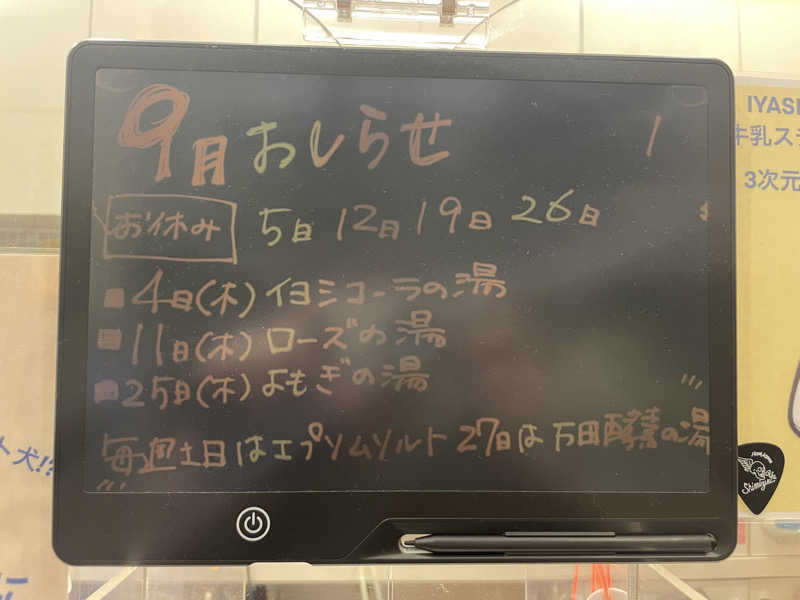 9月おしらせ
お休み 5日 12日 19日 26日
4日(木)イヨシコーラの湯
11日(木)ローズの湯
25日(木)よもぎの湯
毎週土日はエプソムソルト 27日は万田酵素の湯
IYASI
牛乳ス
3次元
ト犬!?